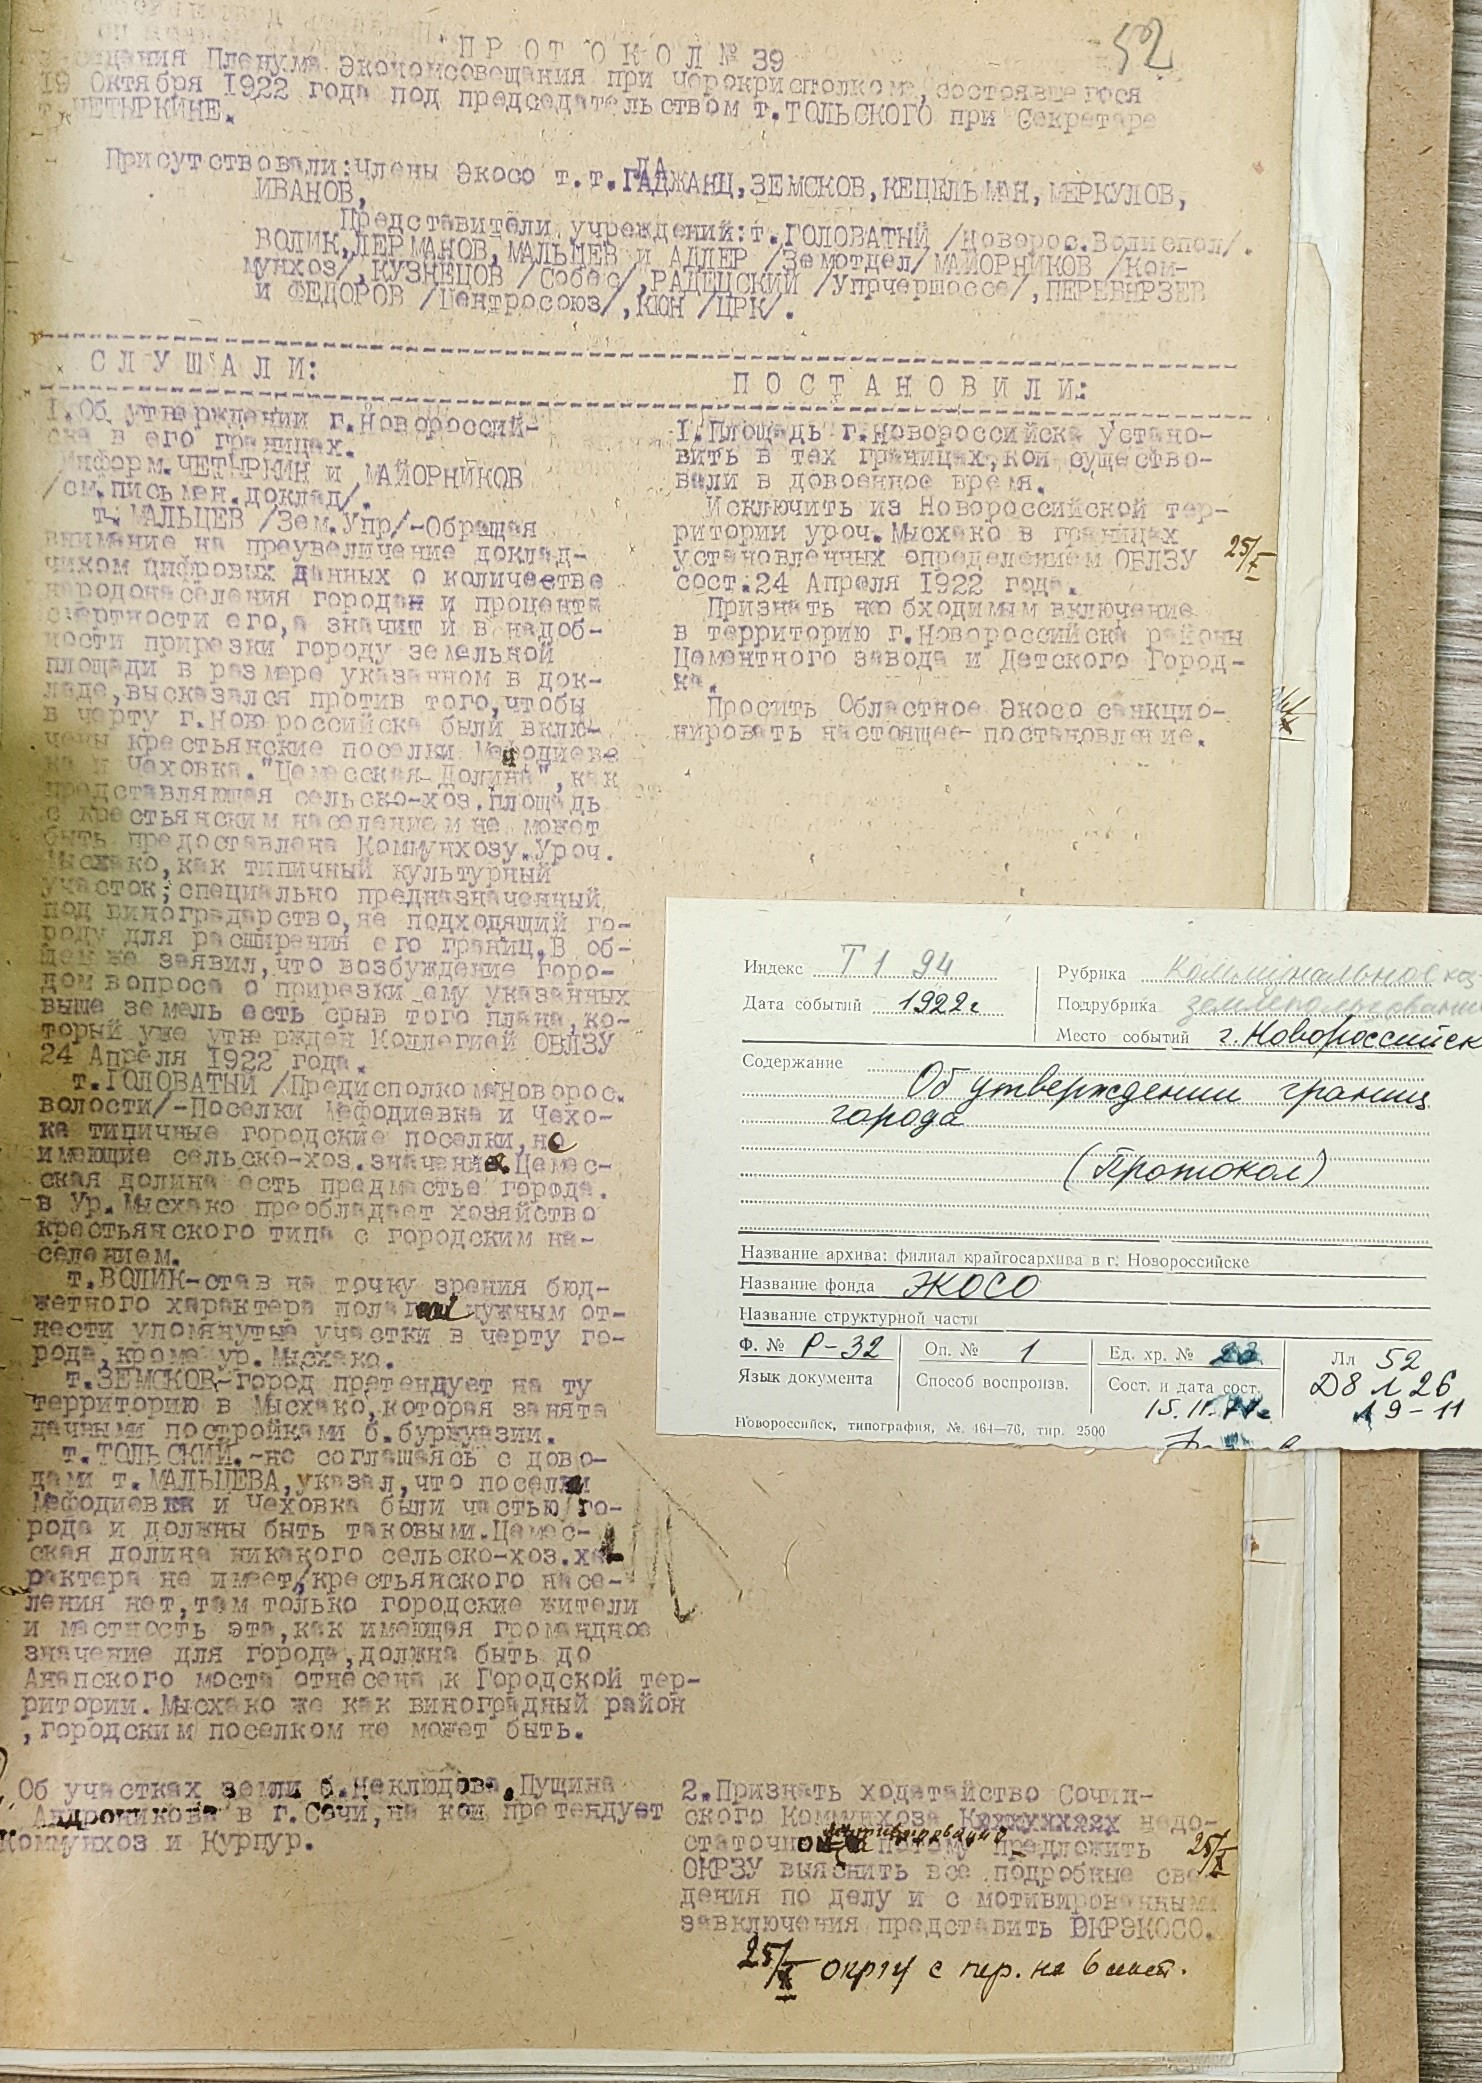 52
ПРОТОКОЛ № 39
Пленума Экономсовещания при Черокрисполкоме, состоявшегося
19 Октября 1922 года под председательством т.ТОЛЬСКОГО при Секретаре
т.ЧЕТЫРКИНЕ.
Присутствовали: члены Экосо т.т. ГАДЖАНЦ, ЗЕМСКОВ, КЕЦЕЛЬМАН, МЕРКУЛОВ,
ДА
ИВАНОВ,
Представители учреждений: т. ГОЛОВАТЫЙ /Новорос.Волиспол/.
ВОЛИК, ДЕРМАНОВ, МАЛЬЦЕВ и АДЛЕР /Земотдел/ МАЙОРНИКОВ /Ком-
мунхоз/, КУЗНЕЦОВ /Собес/, РАДЕЦСКИЙ /Упрчершоссе/, ПЕРЕВЯРЗЕВ
и ФЕДОРОВ /Центросоюз/, КЮН /ЦРК/.
СЛУШАЛИ:
1. Об утверждении г.Новороссий-
ска в его границах.
Информ.ЧЕТЫРКИН и МАЙОРНИКОВ
/см.письмен.доклад/.
т. МАЛЬЦЕВ /Зем.Упр/-Обращая
внимание на преувеличение доклад-
чиком цифровых данных о количестве
народонаселения города и и процента
смертности его, а значит и в надоб-
ности прирезки городу земельной
площади в размере указанном в док-
ладе, высказался против того, чтобы
в черту г.Новороссийска были вклю-
чены крестьянские поселки Мефодиев
ка и Чеховка. "Цемесская Долина", как
представляющая сельско-хоз.площадь
с крестьянским населением не может
быть предоставлена Коммунхозу. Уроч.
Мысхако, как типичный культурный
участок; специально предназначенный
под виноградарство, не подходящий го-
роду для расширения его границ. В об-
щем же заявил, что возбуждение горо-
дом вопроса о прирезки ему указанных
выше земель есть срыв того плана, ко-
торый уже утвержден Коллегией ОБЛЗУ
24 Апреля 1922 года.
т.ГОЛОВАТЫЙ /Предисполкома Новорос.
волости/-Поселки Мефодиевка и Чехо-
ка типичные городские поселки, не
имеющие сельско-хоз.значения. Цемес-
ская долина есть предмастье города.
в Ур. Мысхако преобладает хозяйство
крестьянского типа с городским на-
селением.
т.ВОЛИК-став на точку зрения бюд-
жетного характера полагал нужным от-
нести упомянутые участки в черту го-
рода, кроме ур. Мысхако.
т.ЗЕМСКОВ-город претендует на ту
территорию в Мысхако, которая занята
дачными постройками б.буржуазии.
т.ТОЛЬСКИЙ.-не соглашаясь с дово-
дами т. МАЛЬЦЕВА, указал, что поселки
Мефодиевка и Чеховка были частью го-
рода и должны быть таковыми. Цемес-
ская долина никакого сельско-хоз.ха-
рактера не имеет, крестьянского насе-
ления нет, там только городские жители
и мастность эта, как имеющая громандное
значение для города, должна быть до
Анапского моста отнесена к Городской тер-
ритории. Мысхако же как виноградный район
, городским поселком не может быть.
Об участках земли б.Неклюдова, Пущина
Андроникова в г.Сочи, на кои претендует
Коммунхоз и Курпур.
ПОСТАНОВИЛИ:
1. Площадь г.Новороссийска устано-
вить в тех границах, кои существо-
вали в довоенное время.
Исключить из Новороссийской тер-
ритории уроч. Мысхако в границах
установленных определением ОБЛЗУ
сост. 24 Апреля 1922 года.
25/X
Признать необходимым включение
в территорию г.Новороссийска районы
Цементного завода и Детского Город-
ка.
Просить Областное Экосо санкцио-
нировать настоящее постановление.
2. Признать ходатайство Сочин-
ского Коммунхоза недо-
статочно мотивировано
потому предложить
25/X
ОКРЗУ выяснить все подробные све
дения по делу и с мотивированным
завключения представить ОКРЭКОСО.
25/X окрзу с пер. на 6 лист.
Индекс Т 1 94
Дата событий 1922 г
Рубрика Коммунальное хоз
Подрубрика землепользование
Место событий г.Новороссийск
Содержание Об утверждении границ
города
(Протокол)
Название архива: филиал крайгосархива в г. Новороссийске
Название фонда ЭКОСО
Название структурной части
Ф. № Р-32 Оп. № 1 Ед. хр. № Лл 52
Язык документа Способ воспроизв. Сост. и дата сост. Д8 л 26
15.11. 19-11
Новороссийск, типография, №. 464—76, тир. 2500